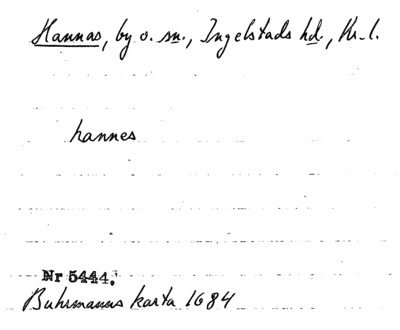 Hannas, by o. sn., Ingelstads hd., Kr. l.
hannes
Nr 5444.
Buhrmanns karta 1684